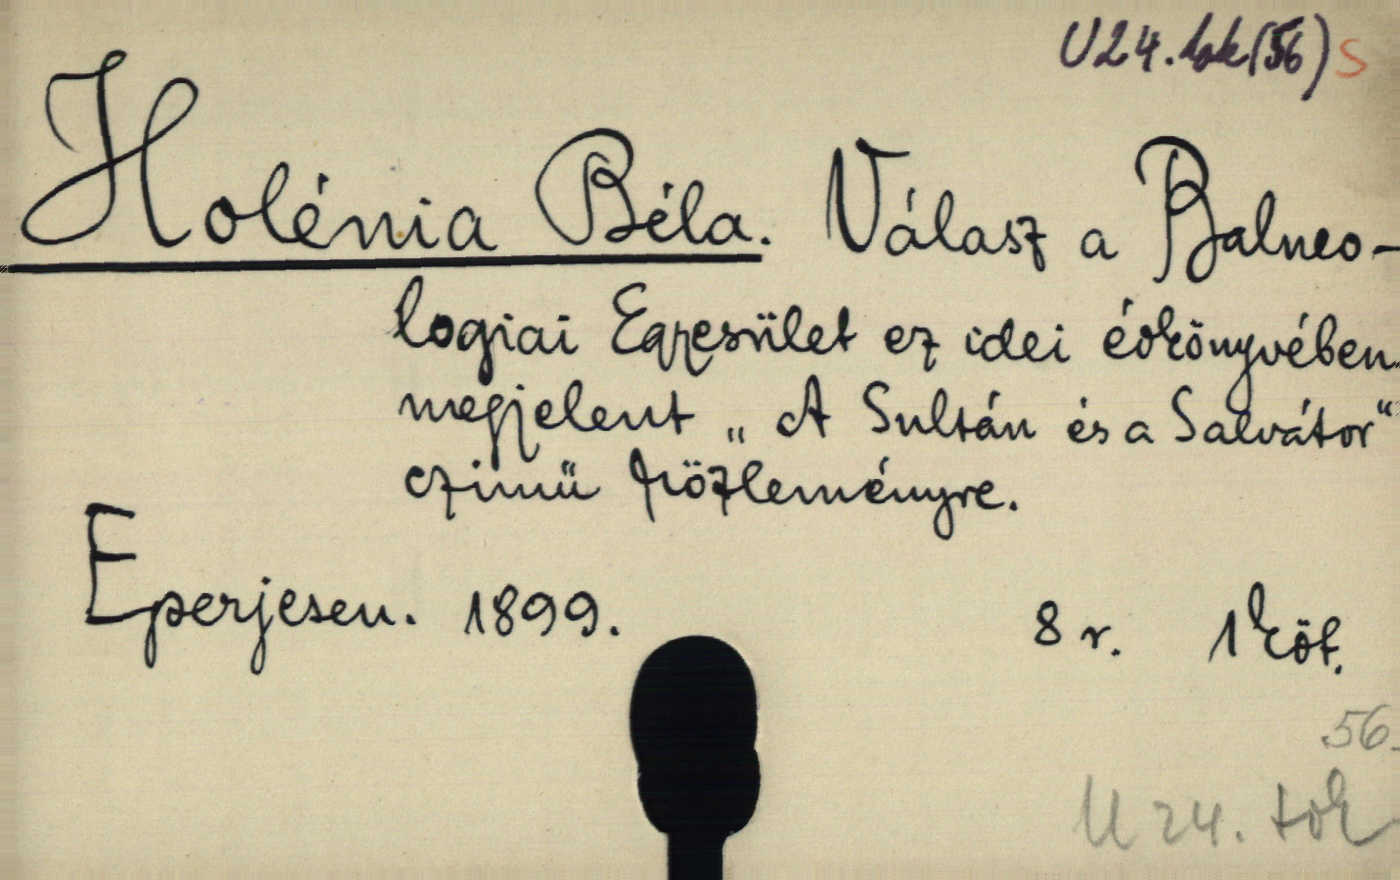 U 24. tok (56) S
Holénia Béla. Válasz a Balneo-
logiai Egyesület ez idei évkönyvében
megjelent „A Sultán és a Salvátor“
czimü közleményre.
Eperjesen. 1899. 8 r. 1 köt.
56.
U 24. tok